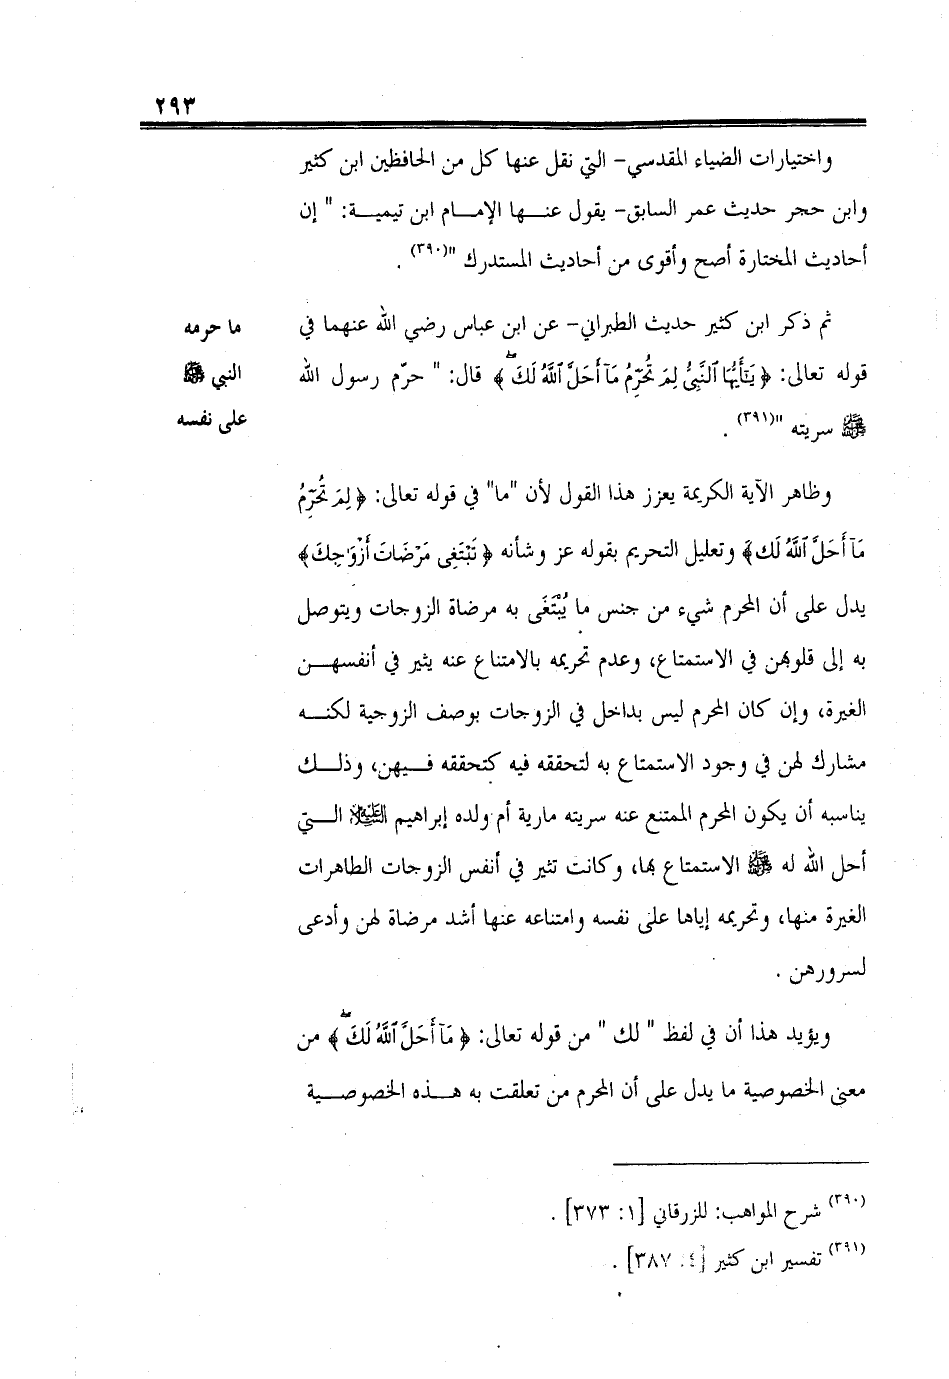 ٢٩٣
واختيارات الضياء المقدسي- التي نقل عنها كل من الحافظين ابن كثير
وابن حجر حديث عمر السابق- يقول عنها الإمام ابن تيمية: " إن
أحاديث المختارة أصح وأقوى من أحاديث المستدرك "(٣٩٠) .
ثم ذكر ابن كثير حديث الطبراني- عن ابن عباس رضي الله عنهما في
قوله تعالى: ﴿ يَـٰٓأَيُّهَا ٱلنَّبِىُّ لِمَ تُحَرِّمُ مَآ أَحَلَّ ٱللَّهُ لَكَ ۖ ﴾ قال: " حرّم رسول الله
ﷺ سريته "(٣٩١) .
ما حرمه
النبي ﷺ
على نفسه
وظاهر الآية الكريمة يعزز هذا القول لأن "ما" في قوله تعالى: ﴿ لِمَ تُحَرِّمُ
مَآ أَحَلَّ ٱللَّهُ لَكَ ﴾ وتعليل التحريم بقوله عز وشأنه ﴿ تَبْتَغِى مَرْضَاتَ أَزْوَٰجِكَ ﴾
يدل على أن المحرم شيء من جنس ما يُبْتَغَى به مرضاة الزوجات ويتوصل
به إلى قلوبهن في الاستمتاع، وعدم تحريمه بالامتناع عنه يثير في أنفسهن
الغيرة، وإن كان المحرم ليس بداخل في الزوجات بوصف الزوجية لكنه
مشارك لهن في وجود الاستمتاع به لتحققه فيه كتحققه فيهن، وذلك
يناسبه أن يكون المحرم الممتنع عنه سريته مارية أم ولده إبراهيم العليه السلام التي
أحل الله له ﷺ الاستمتاع بها، وكانت تثير في أنفس الزوجات الطاهرات
الغيرة منها، وتحريمه إياها على نفسه وامتناعه عنها أشد مرضاة لهن وأدعى
لسرورهن .
ويؤيد هذا أن في لفظ " لك " من قوله تعالى: ﴿ مَآ أَحَلَّ ٱللَّهُ لَكَ ۖ ﴾ من
معنى الخصوصية ما يدل على أن المحرم من تعلقت به هذه الخصوصية
(٣٩٠) شرح المواهب: للزرقاني [١: ٣٧٣] .
(٣٩١) تفسير ابن كثير [٤: ٣٨٧] .